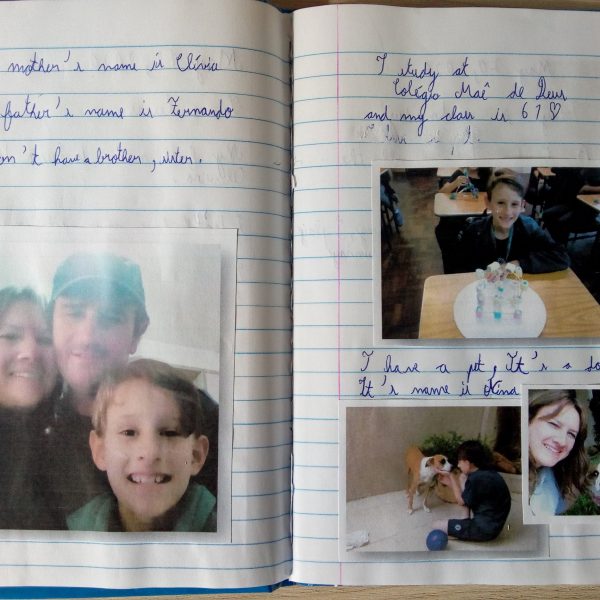 mother's name is Clívia
father's name is Fernando
on't have a brother, sister.
I study at
Colégio Maê de Deus
and my class is 61♡
I have a pet, It's a do
It's name is